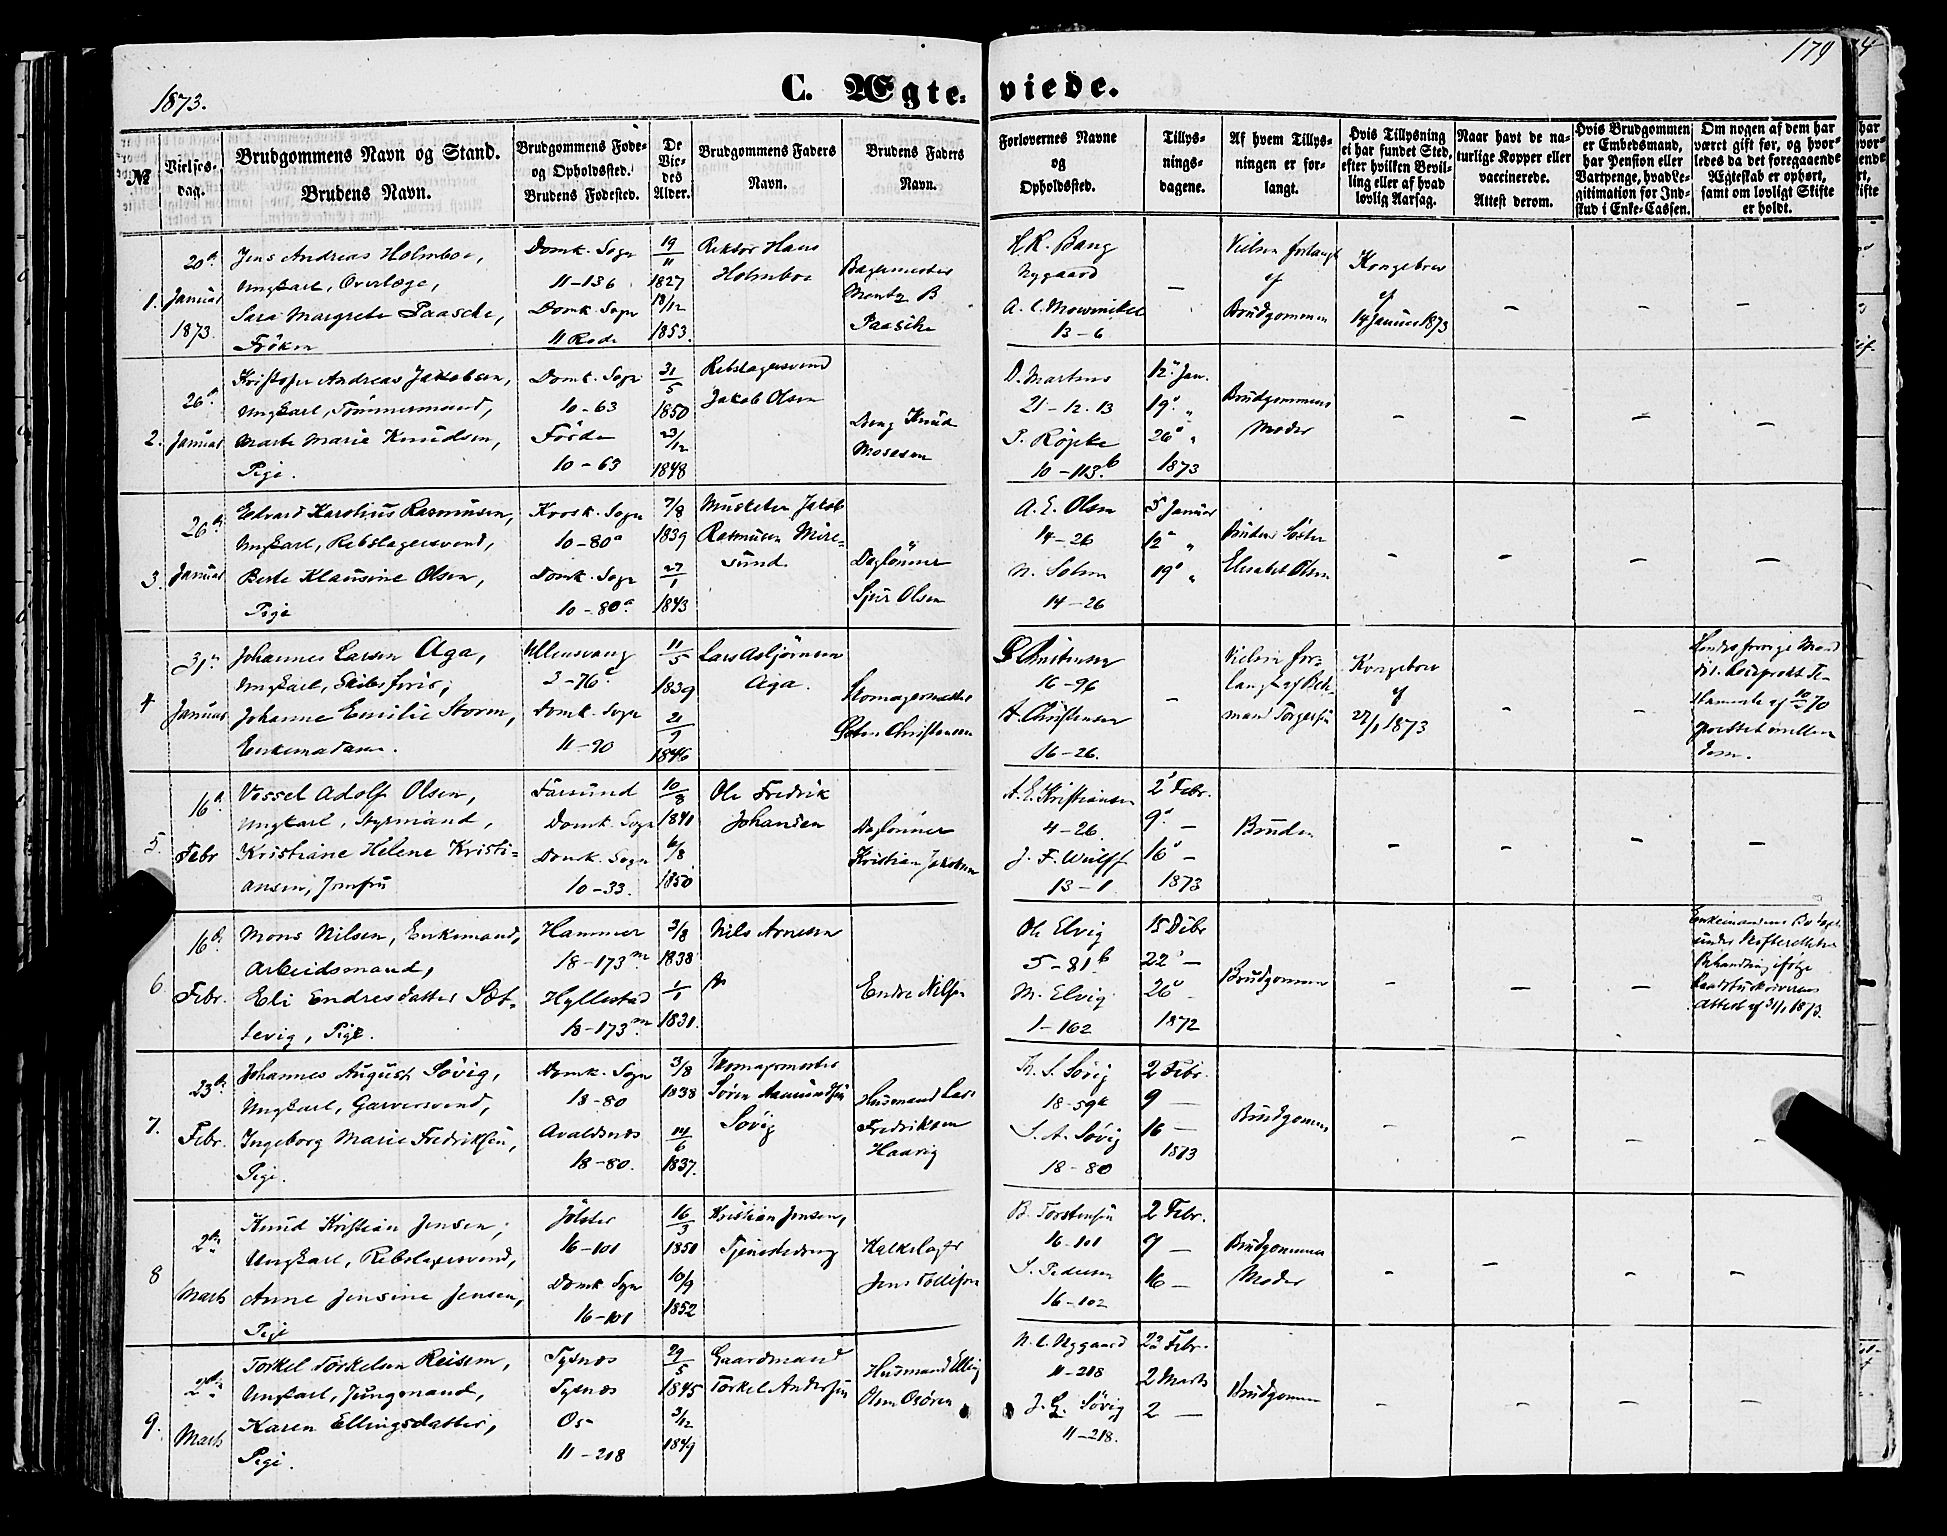 1873.
C. Ægteviede.
179
№
Vielses-
dag.
Brudgommens Navn og Stand.
Brudens Navn.
Brudgommens Føde-
og Opholdssted.
Brudens Fødested.
De
Vie-
des
Alder.
Brudgommens Faders
Navn.
Brudens Faders
Navn.
Forlovernes Navne
og
Opholdssted.
Tillys-
nings-
dagene.
Af hvem Tillys-
ningen er for-
langt.
Hvis Tillysning
ei har fundet Sted,
efter hvilken Bevil-
ling eller af hvad
lovlig Aarsag.
Naar havt de na-
turlige Kopper eller
vaccinerede.
Attest derom.
Hvis Brudgommen
er Embedsmand,
har Pension eller
Vartpenge, hvad Le-
gitimation for Ind-
skud i Enke-Cassen.
Om nogen af dem har
været gift før, og hvor-
ledes da det foregaaende
Ægteskab er ophørt,
samt om lovligt Skifte
er holdt.
1.
20de
Januar
1873.
Jens Andreas Holmboe,
Ungkarl, Overlæge,
Sara Margrete Paasche,
Frøken
Domk. Sogn
11-136
Domk. Sogn
11 Rode
19/11
1827
18/12
1853.
Rektor Hans
Holmboe
Bagermester
Mentz B
Paasche
H.K. Bang
Nygaard
A. C. Mowinckel
13-6
—
Vielsen forlangt
af
Brudgommen
Kongebrev
af
14 Januar 1873
2.
26de
Januar
Kristofer Andreas Jakobsen,
Ungkarl, Tømmermand,
Marte Marie Knudsen,
Pige.
Domk. Sogn
10-63
Førde
10-63
31/5
1850
23/12
1848
Rebslagersvend
Jakob Olsen
Dreng Knud
Mosesen
D. Martens
21-12.13
P. Røpke
10-113.b
12te Jan.
19de "
26de "
1873
Brudgommens
Moder
3.
26de
Januar
Edvard Karolius Rasmussen,
Ungkarl, Rebslagersvend,
Berte Klausine Olsen,
Pige
Korsk. Sogn
10-80a
Domk. Sogn
10-80a
7/8
1839
27/1
1843
Musketer Jakob
Rasmusen Mire-
sund.
Daglønner
Sjur Olsen
A. E. Olsen
14-26
N. Solem
14-26
5 Januar
12te "
19de "
Brudens Søster
Elisabet Olsen
4
31te
Januar
Johannes Larsen Aga,
Ungkarl, Skibsfører,
Johanne Emilie Storm,
Enkemadam.
Ullensvang
2-76
Domk. Sogn
11-90
11/5
1839
1846
Lars Asbjørnsen
Aga.
Skomagermester
Christensen
Christensen
16-96
A. Christensen
16-26.
—
Vielsen for-
langt af
mand Torgersen
Kongebrev
af
27/1 1873
Hendes forrige Mand
5.
16de
Febr
Vessel Adolf Olsen,
Ungkarl, Styrmand,
Kristiane Helene Kristi-
ansen, Jomfru
Farsund
Domk. Sogn
Domk. Sogn
10-33.
10/8
1841
6/8
1850
Ole Fredrik
Johansen
Daglønner
Kristian Jakobsen
A. E. Kristiansen
4-26.
J. F. Wulff
13-1
2de Febr.
9de —
16de —
1873
Bruden
6
16de
Febr.
Mons Nilsen, Enkemand,
Arbeidsmand,
Eli Endresdatter Sæt-
tevig, Pige.
Hammer
18-173m
Hyllestad
18-173m
3/8
1838
1/1
1831.
Nils Arnesen
Endre Nilsen
Ole Elvig
5-81b
M. Elvig
1-102
15 Debr
22de —
26de —
1872
Brudgommen
Attest af 31/1 1873.
7.
23de
Febr.
Johannes August Søvig,
Ungkarl, Garversvend,
Ingeborg Marie Fredriksen,
Pige.
Domk. Sogn
18-80
Avaldsnes
18-80.
3/8
1838
14/6
1837.
Skomagermester
Søren Aamundsen
Søvig
Husmand Lars
Fredriksen
Haavig
S. Søvig
18-59
S. A. Søvig
18-80
2 Febr.
9 —
16 —
1873
Brudgommen
8
2den
Marts
Knud Kristian Jensen,
Ungkarl, Rebslagersvend,
Anne Jensine Jensen,
Pige
Jølster
16-101
Domk Sogn
16-101
16/3
1850
10/9
1852
Kristian Jensen,
Tjenestedreng
Kalkslager
Jens Tollefsen
B. Torstensen
16-101
S. Pedersen
16-102
2 Febr.
9 —
16 —
Brudgommens
Moder
9.
2den
Marts
Torkel Torkelsen Reisem,
Ungkarl, Jungmand,
Karen Ellingsdatter,
Pige.
Tysnes
Tysnes
Os
11-218
29/5
1845
3/12
1849
Gaardmand
Torkel Andersen
Husmand Elling
Olsen Osøren
N. C. Nygaard
11-218
J. G. Søvig
11-218.
23 Febr.
2 Marts
2 —
Brudgommen